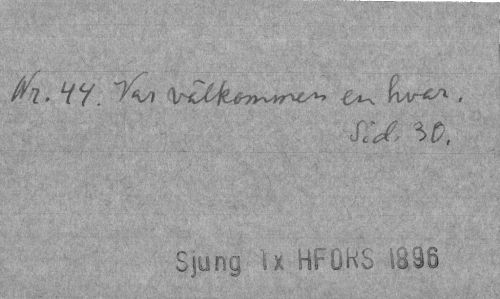 Nr. 44. Var välkommen en hvar.
Sid. 30.
Sjung 1x HFORS 1896